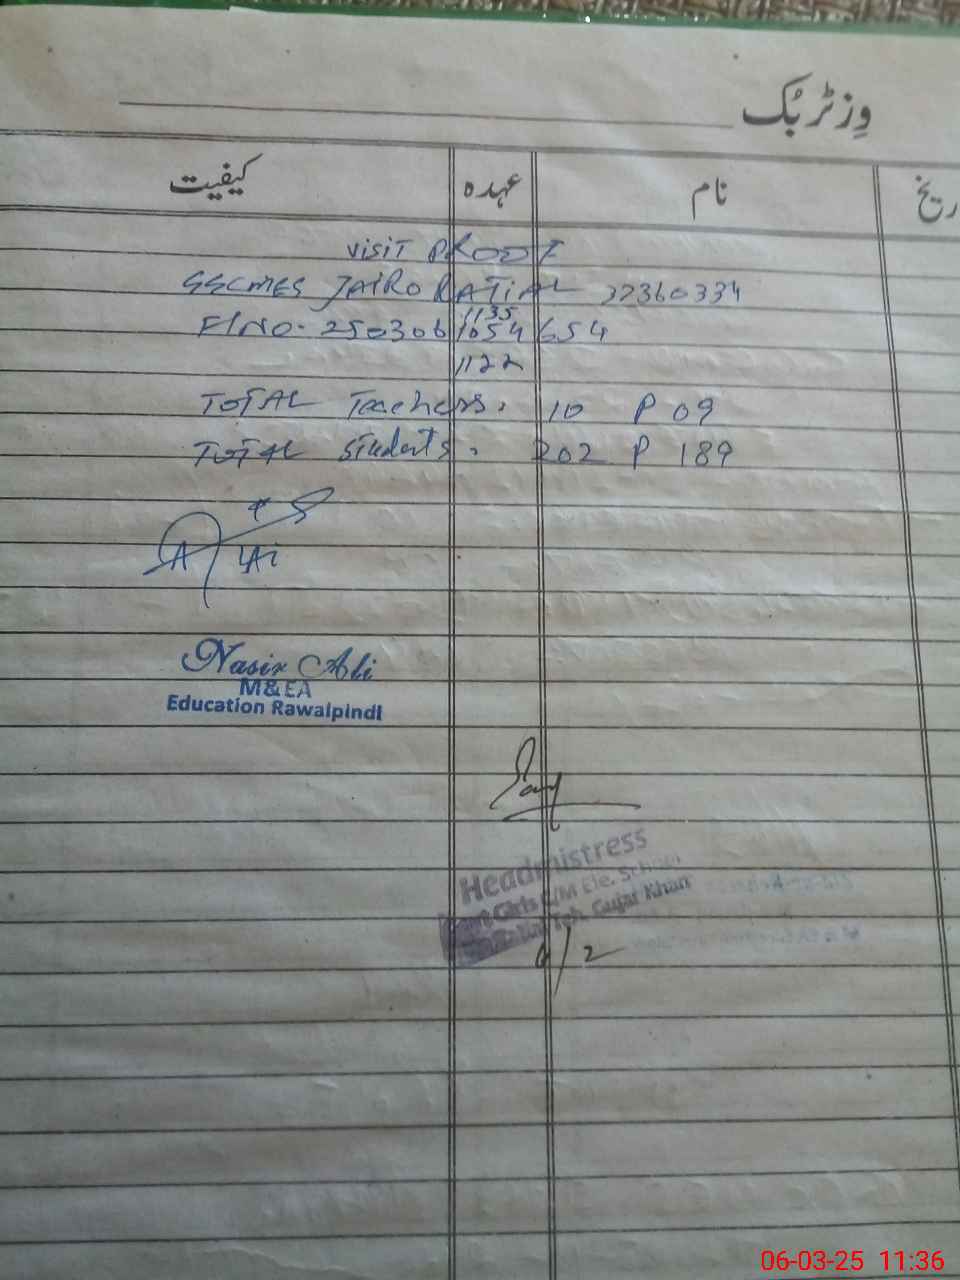 وِزٹر بُک
ریخ نام عہدہ کیفیت
VISIT PROOF
GGCMES JATRO RATIAL 37360334
1135
FINO. 250306 1054 654
1122
TOTAL Teachers. 10 P 09
TOTAL Students. 202 P 189
Nasir Ali
M&EA
Education Rawalpindi
Headmistress
Govt Girls C/M Ele. School
Teh. Gujar Khan
6/2
06-03-25 11:36